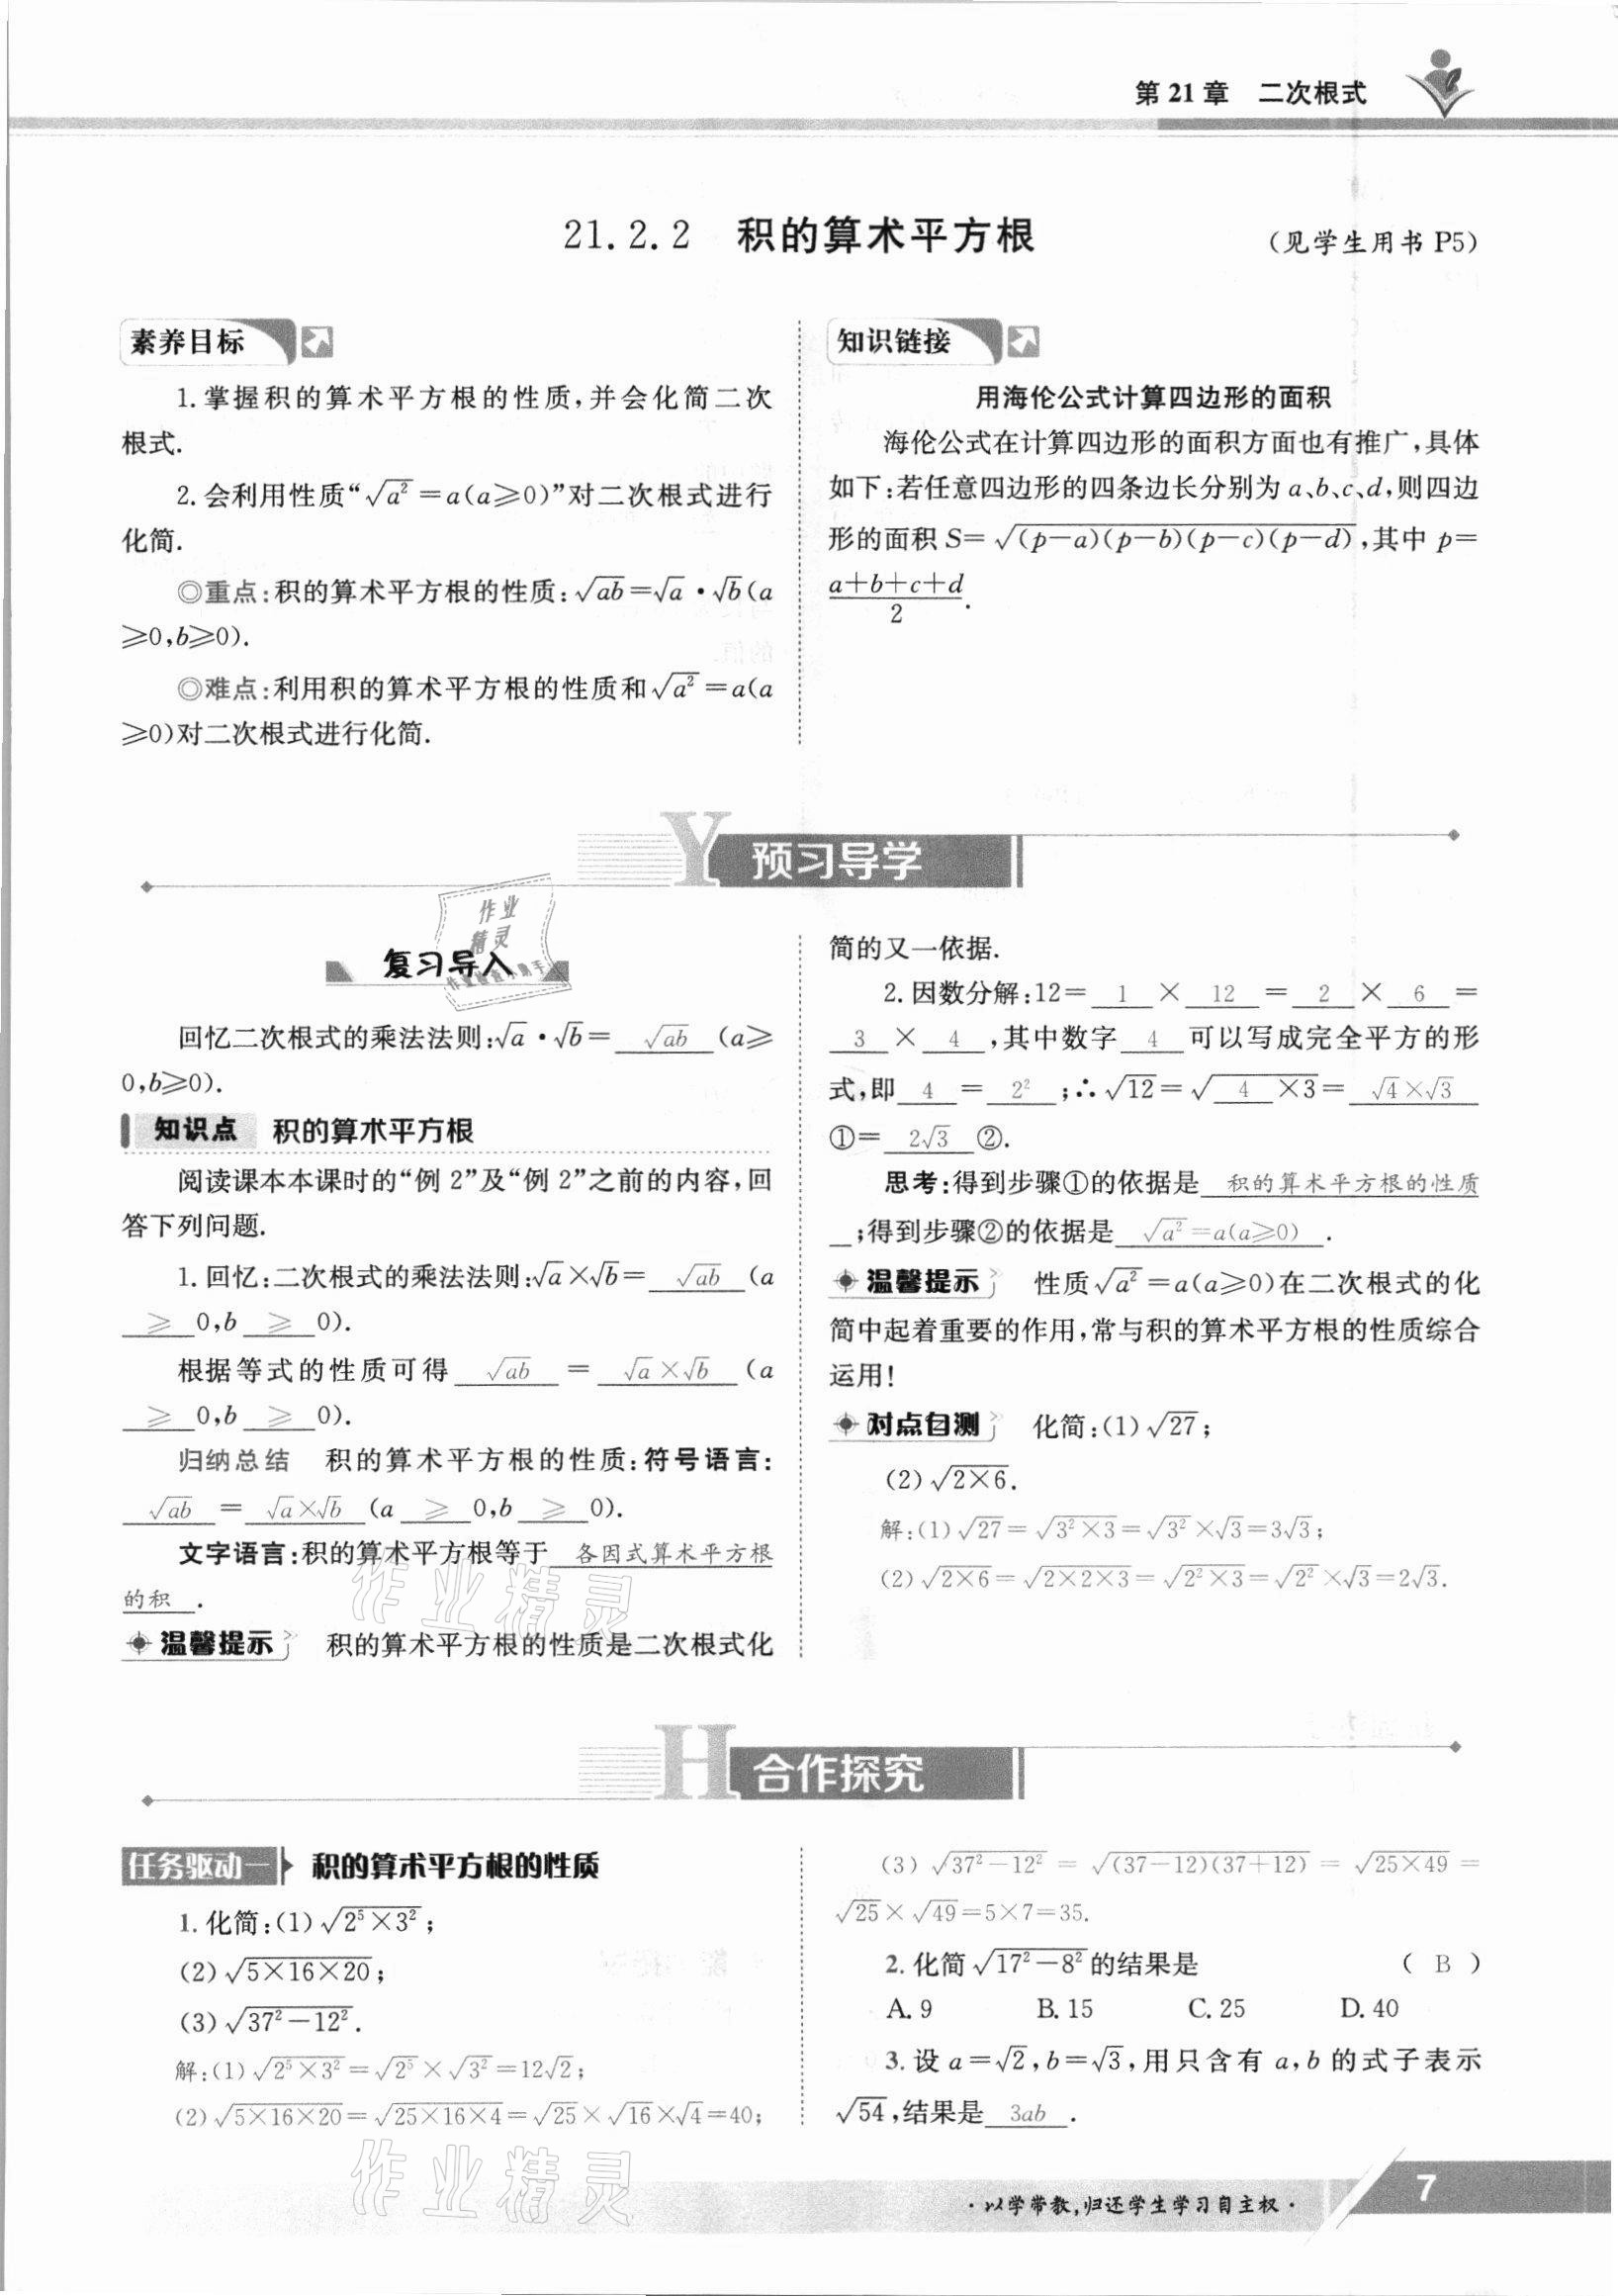 第 21 章 二次根式
21.2.2 积的算术平方根
(见学生用书 P5)
素养目标
1. 掌握积的算术平方根的性质,并会化简二次
根式.
2. 会利用性质“√a² = a(a≥0)”对二次根式进行
化简.
◎重点:积的算术平方根的性质:√ab=√a·√b(a
≥0,b≥0).
◎难点:利用积的算术平方根的性质和√a² =a(a
≥0)对二次根式进行化简.
知识链接
用海伦公式计算四边形的面积
海伦公式在计算四边形的面积方面也有推广,具体
如下:若任意四边形的四条边长分别为 a、b、c、d,则四边
形的面积 S= √(p-a)(p-b)(p-c)(p-d),其中 p=
a+b+c+d
2
.
Y 预习导学
复习导入
回忆二次根式的乘法法则:√a·√b= √ab (a≥
0,b≥0).
知识点 积的算术平方根
阅读课本本课时的“例 2”及“例 2”之前的内容,回
答下列问题.
1. 回忆:二次根式的乘法法则:√a×√b= √ab (a
≥ 0,b ≥ 0).
根据等式的性质可得 √ab = √a×√b (a
≥ 0,b ≥ 0).
归纳总结 积的算术平方根的性质:符号语言:
√ab = √a×√b (a ≥ 0,b ≥ 0).
文字语言:积的算术平方根等于 各因式算术平方根
的积 .
温馨提示 积的算术平方根的性质是二次根式化
简的又一依据.
2. 因数分解:12= 1 × 12 = 2 × 6 =
3 × 4 ,其中数字 4 可以写成完全平方的形
式,即 4 = 2² ;∴√12=√4 ×3= √4×√3
①= 2√3 ②.
思考:得到步骤①的依据是 积的算术平方根的性质
;得到步骤②的依据是 √a²=a(a≥0) .
温馨提示 性质√a² =a(a≥0)在二次根式的化
简中起着重要的作用,常与积的算术平方根的性质综合
运用!
对点自测 化简:(1)√27;
(2)√2×6.
解:(1)√27=√3²×3=√3²×√3=3√3;
(2)√2×6=√2×2×3=√2²×3=√2²×√3=2√3.
H 合作探究
任务驱动一 积的算术平方根的性质
1. 化简:(1)√2⁵×3²;
(2)√5×16×20;
(3)√37²-12².
解:(1)√2⁵×3²=√2⁵×√3²=12√2;
(2)√5×16×20=√25×16×4=√25×√16×√4=40;
(3) √37²-12² = √(37-12)(37+12) = √25×49 =
√25×√49=5×7=35.
2. 化简√17²-8²的结果是 ( B )
A. 9 B. 15 C. 25 D. 40
3. 设 a=√2,b=√3,用只含有 a,b 的式子表示
√54,结果是 3ab .
·以学带教,归还学生学习自主权·
7
作业精灵
作业精灵
作业
精灵